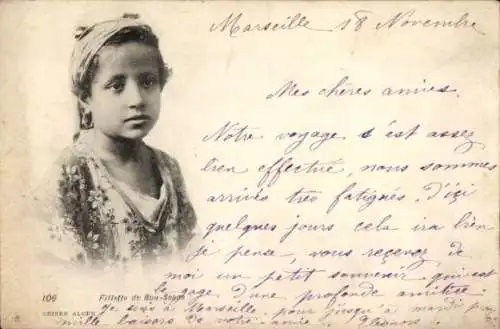 Marseille 18 Novembre
Mes chères amies.
Notre voyage s'est assez
bien effectué, nous sommes
arrivés très fatigués. D'içi
quelques jours cela ira bien
je pense, vous recevez de
moi un petit souvenir qui est
le gage d'une profonde amitié.
Je suis à Marseille pour jusqu'à mardi
mille baisers de votre amie
106 Fillette de Bou-Saada
GEISER ALGER